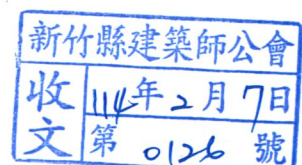 新竹縣建築師公會
收文
114年2月7日
第 0126 號